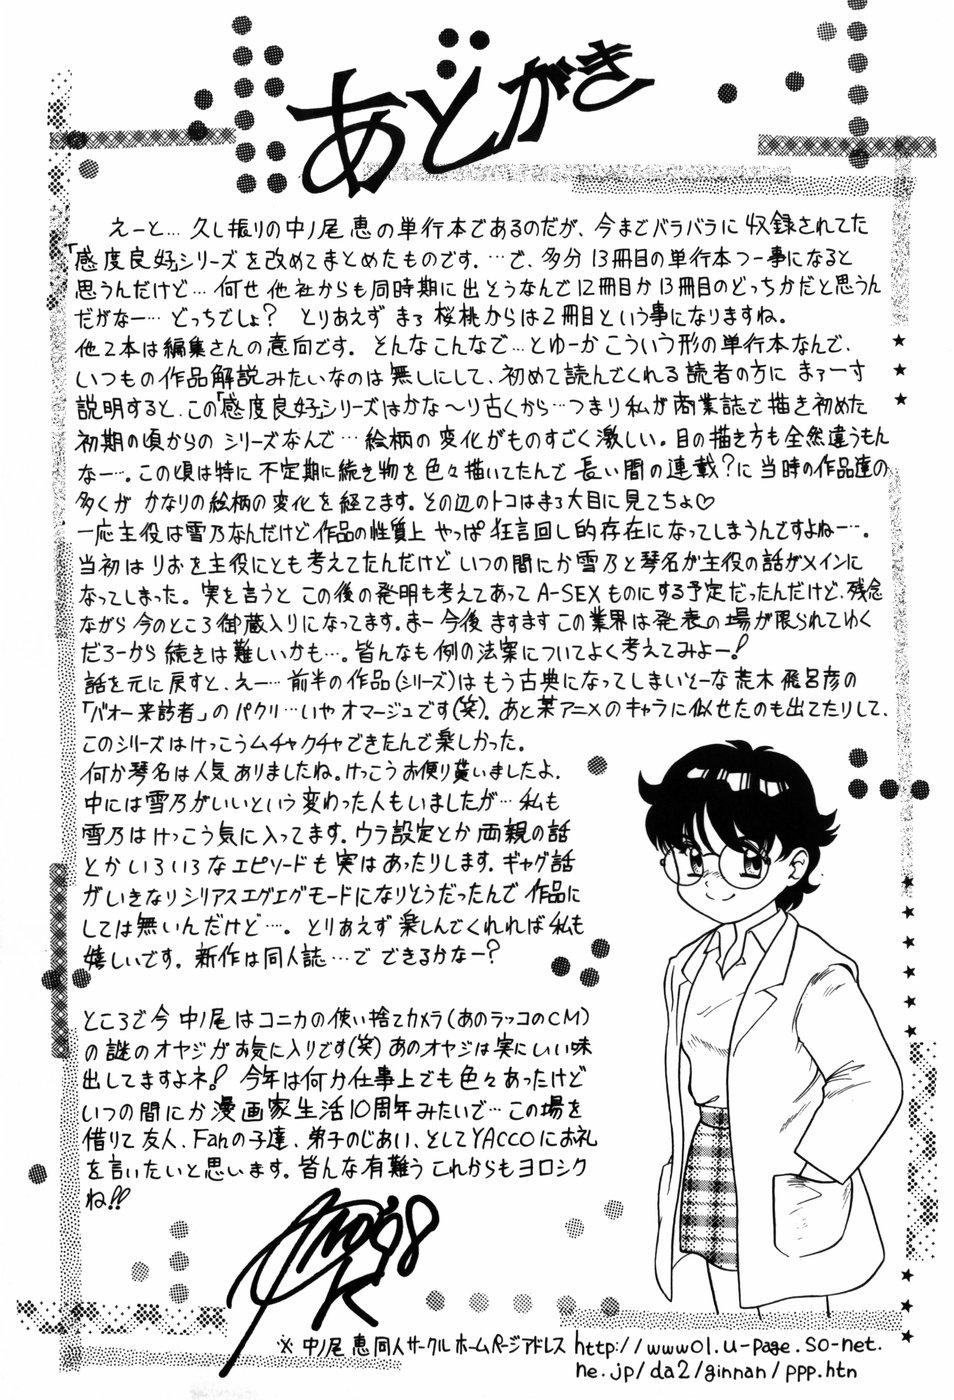 あとがき
えーと… 久し振りの中ノ尾 恵の単行本であるのだが、今までバラバラに収録されてた
「感度良好」シリーズを改めてまとめたものです。…で、多分13冊目の単行本つー事になると
思うんだけど… 何せ他社からも同時期に出そうなんで12冊目か13冊目のどっちかだと思うん
だがなー… どっちでしょ？ とりあえず まろ 桜桃からは2冊目という事になりますね。
他2本は編集さんの意向です。そんなこんなで…とゆーか こういう形の単行本なんで、
いつもの作品解説みたいなのは無しにして、初めて読んでくれる読者の方に まァーす
説明すると、この「感度良好」シリーズはかな〜り古くから…つまり私が商業誌で描き初めた
初期の頃からの シリーズなんで… 絵柄の変化がものすごく激しい。目の描き方も全然違うもん
なー…。この頃は特に 不定期に続き物を色々描いてたんで 長い間の連載？に 当時の作品達の
多くが かなりの絵柄の変化を経てます。その辺のトコはまろ大目に見てちょ♡
一応主役は雪乃なんだけど作品の性質上 やっぱ狂言回し的存在になってしまうんですよねー…。
当初は りおを主役にとも考えてたんだけど いつの間にか雪乃と琴名が主役の話がメインに
なってしまった。実を言うと この後の発明も考えてあって A-SEXものにする予定だったんだけど、残念
ながら 今のところ御蔵入りになってます。まー今後 ますます この業界は発表の場が限られてゆく
だろーから 続きは難しいかも…。皆んなも例の法案についてよく考えてみよー！
話を元に戻すと、えー…前半の作品(シリーズ)はもう古典になってしまいそーな 荒木飛呂彦の
「バオー来訪者」のパクリ…いやオマージュです(笑)。あと某アニメのキャラに似せたのも出てたりして、
このシリーズはけっこうムチャクチャできたんで楽しかった。
何か琴名は人気ありましたね。けっこうお便り貰いましたよ。
中には雪乃がいいという変わった人もいましたが… 私も
雪乃はけっこう気に入ってます。ウラ設定とか両親の話
とかいろいろなエピソードも実はあったりします。ギャグ話
がいきなりシリアスエグエグモードになりそうだったんで作品に
しては無いんだけど…。とりあえず楽しんでくれれば私も
嬉しいです。新作は同人誌…で できるかなー？
ところで今 中ノ尾はコニカの使い捨てカメラ(あのラッコのCM)
の謎のオヤジがお気に入りです(笑) あのオヤジは実にいい味
出してますよネ！ 今年は何か仕事上でも色々あったけど
いつの間にか漫画家生活10周年みたいで…この場を
借りて友人、Fanの子達、弟子のじあい、そしてYACCOにお礼
を言いたいと思います。皆んな有難う これからもヨロシク
ね!!
'98
※ 中ノ尾 恵同人サークルホームページアドレス http://www01.u-page.so-net.
ne.jp/da2/ginnan/ppp.htn